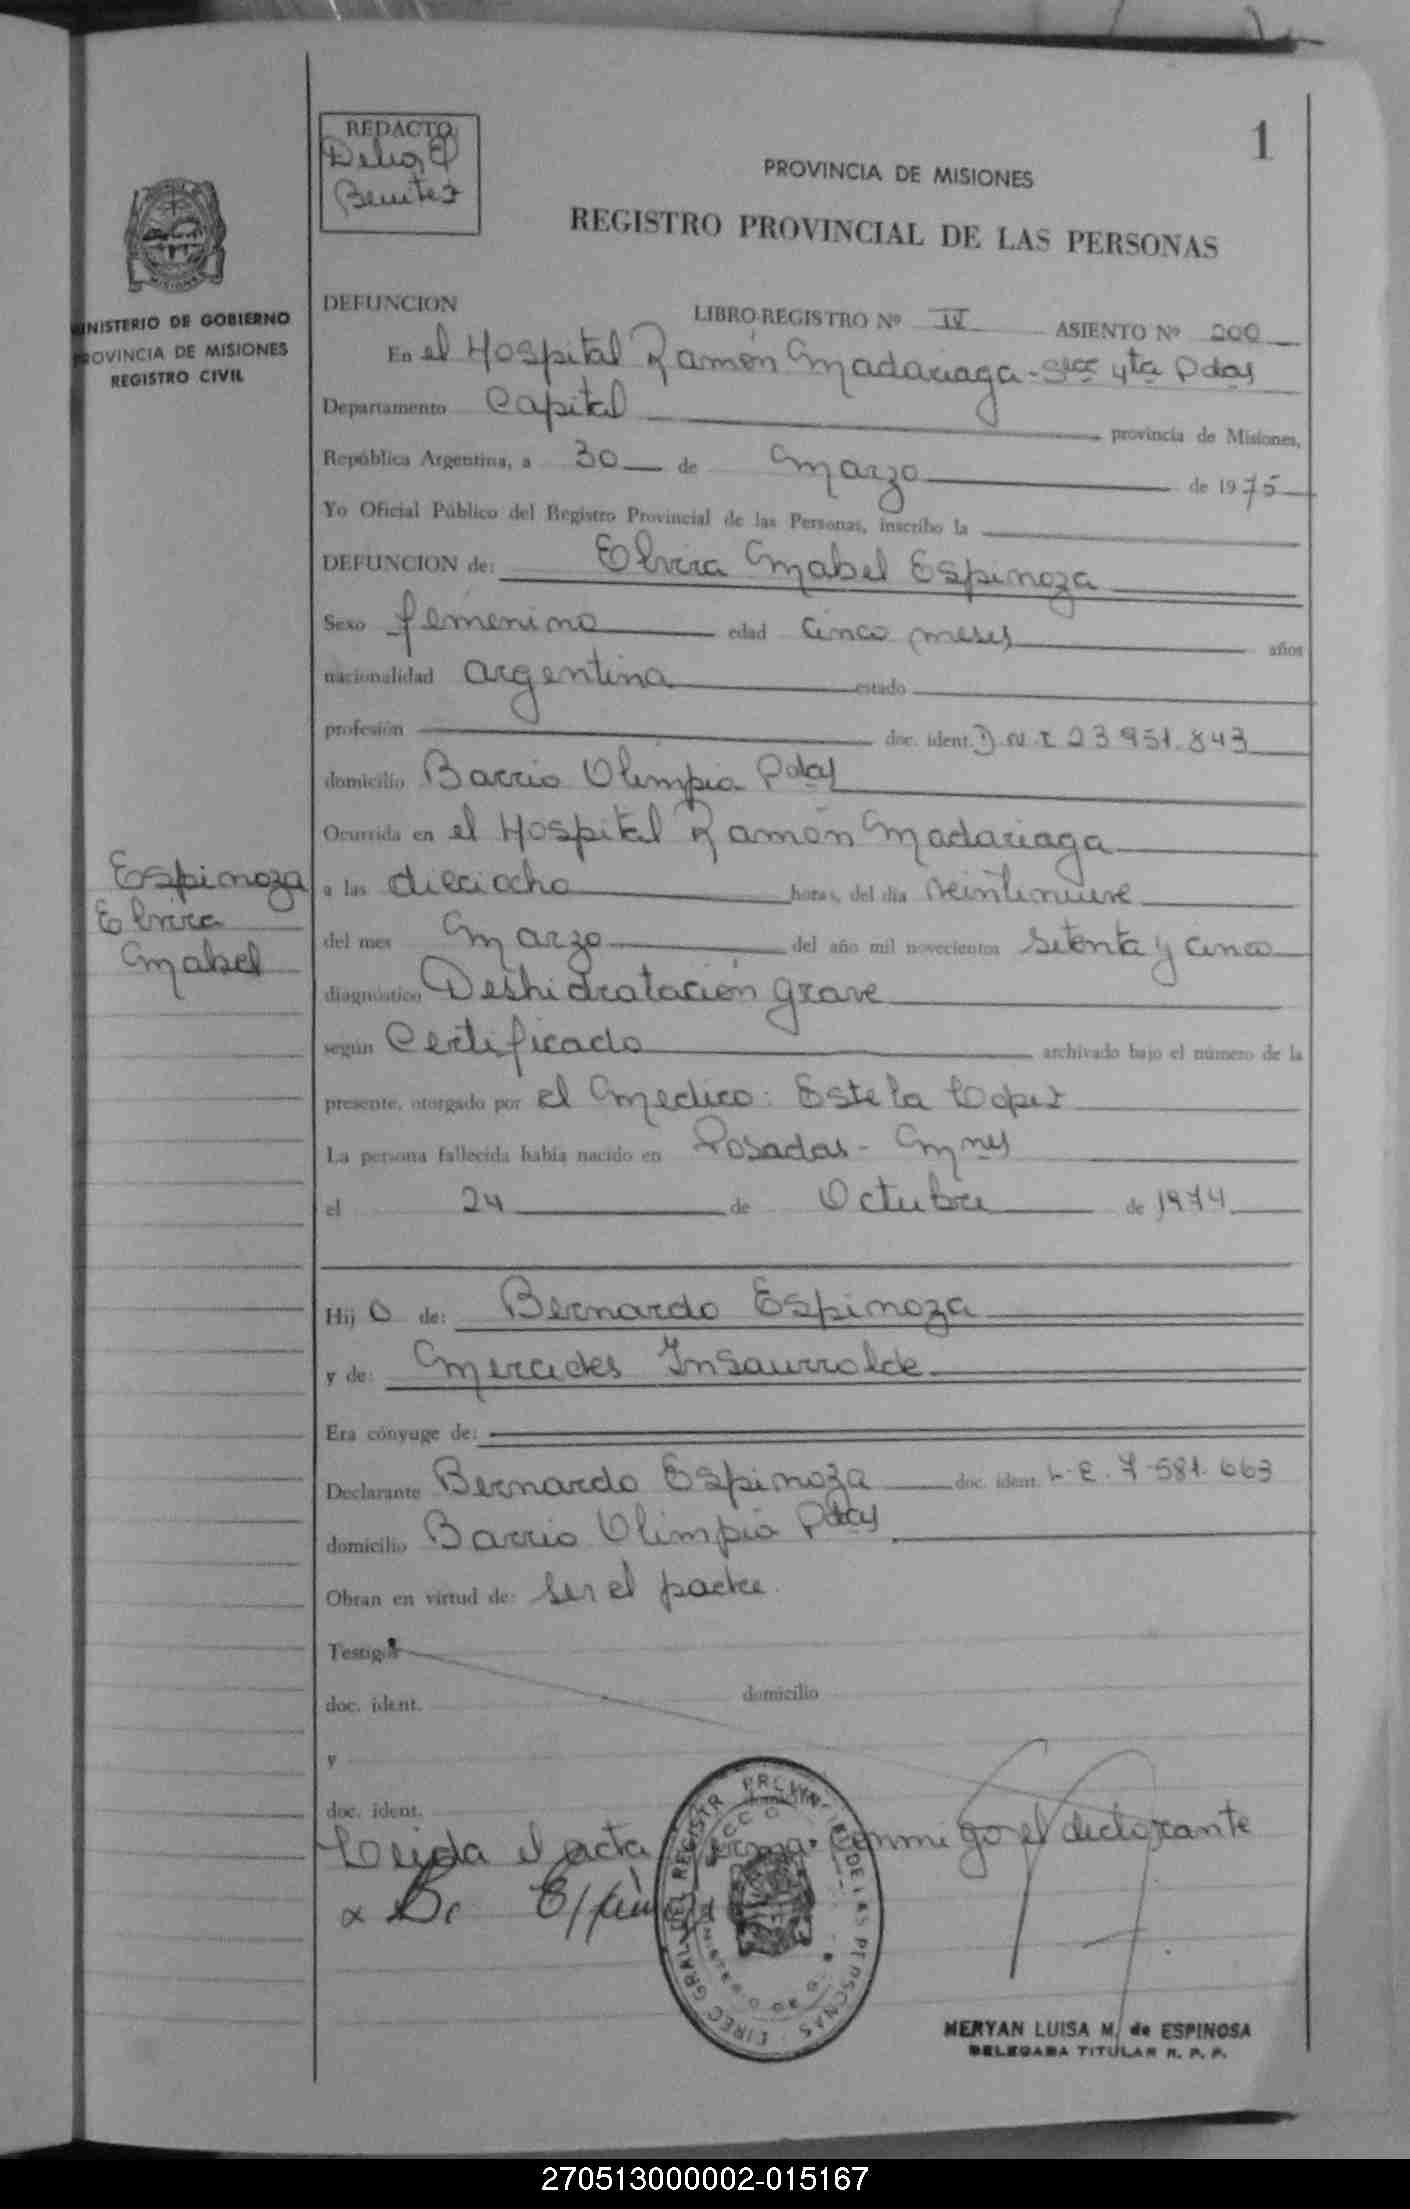 1
REDACTO
Delia E
Benitez
PROVINCIA DE MISIONES
REGISTRO PROVINCIAL DE LAS PERSONAS
MINISTERIO DE GOBIERNO
PROVINCIA DE MISIONES
REGISTRO CIVIL
DEFUNCION LIBRO-REGISTRO Nº IV ASIENTO Nº 200
En el Hospital Ramón Madariaga - Secc 4ta Pdas
Departamento Capital provincia de Misiones,
República Argentina, a 30 de Marzo de 1975
Yo Oficial Público del Registro Provincial de las Personas, inscribo la
DEFUNCION de: Elvira Mabel Espinoza
Sexo femenino edad cinco meses años
nacionalidad argentina estado
profesión doc. ident. D.N.I 23951.843
domicilio Barrio Olimpia Pdas
Ocurrida en el Hospital Ramón Madariaga
Espinoza
Elvira
Mabel
a las dieciocho horas, del día veintinueve
del mes Marzo del año mil novecientos setenta y cinco
diagnóstico Deshidratación grave
según Certificado archivado bajo el número de la
presente, otorgado por el Medico: Estela Lopez
La persona fallecida había nacido en Posadas - Mnes
el 24 de Octubre de 1974
Hij o de: Bernardo Espinoza
y de: Mercedes Insaurralde
Era cónyuge de:
Declarante Bernardo Espinoza doc. ident. L.E. 7.581.663
domicilio Barrio Olimpia Pdas
Obran en virtud de: ser el padre.
Testigo
doc. ident. domicilio
y
doc. ident.
Leida el acta firma conmigo el declarante
x B. Espin
DIREC. GRAL. DEL REGISTR. PROVINCIAL DE LAS PERSONAS
MERYAN LUISA M. de ESPINOSA
DELEGADA TITULAR R. P. P.
270513000002-015167